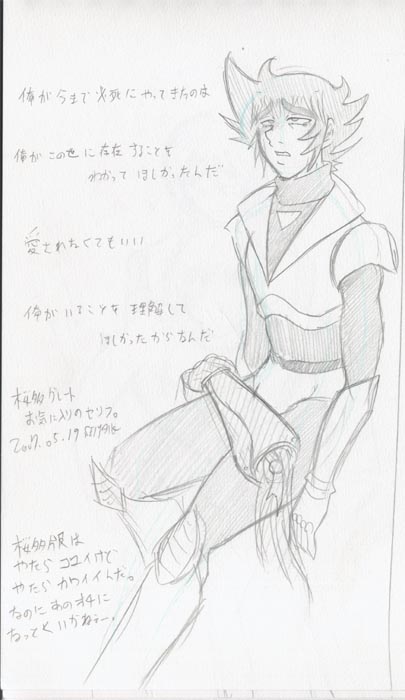 俺が今まで必死にやってきたのは
俺がこの世に存在することを
わかってほしかったんだ
愛されなくてもいい
俺がいることを理解して
ほしかったからなんだ
桜多グレート
お気に入りのセリフ。
2007.05.19
桜多版は
やたらコユイけど
やたらカワイイんだ。
なのにあのオチに
なってく